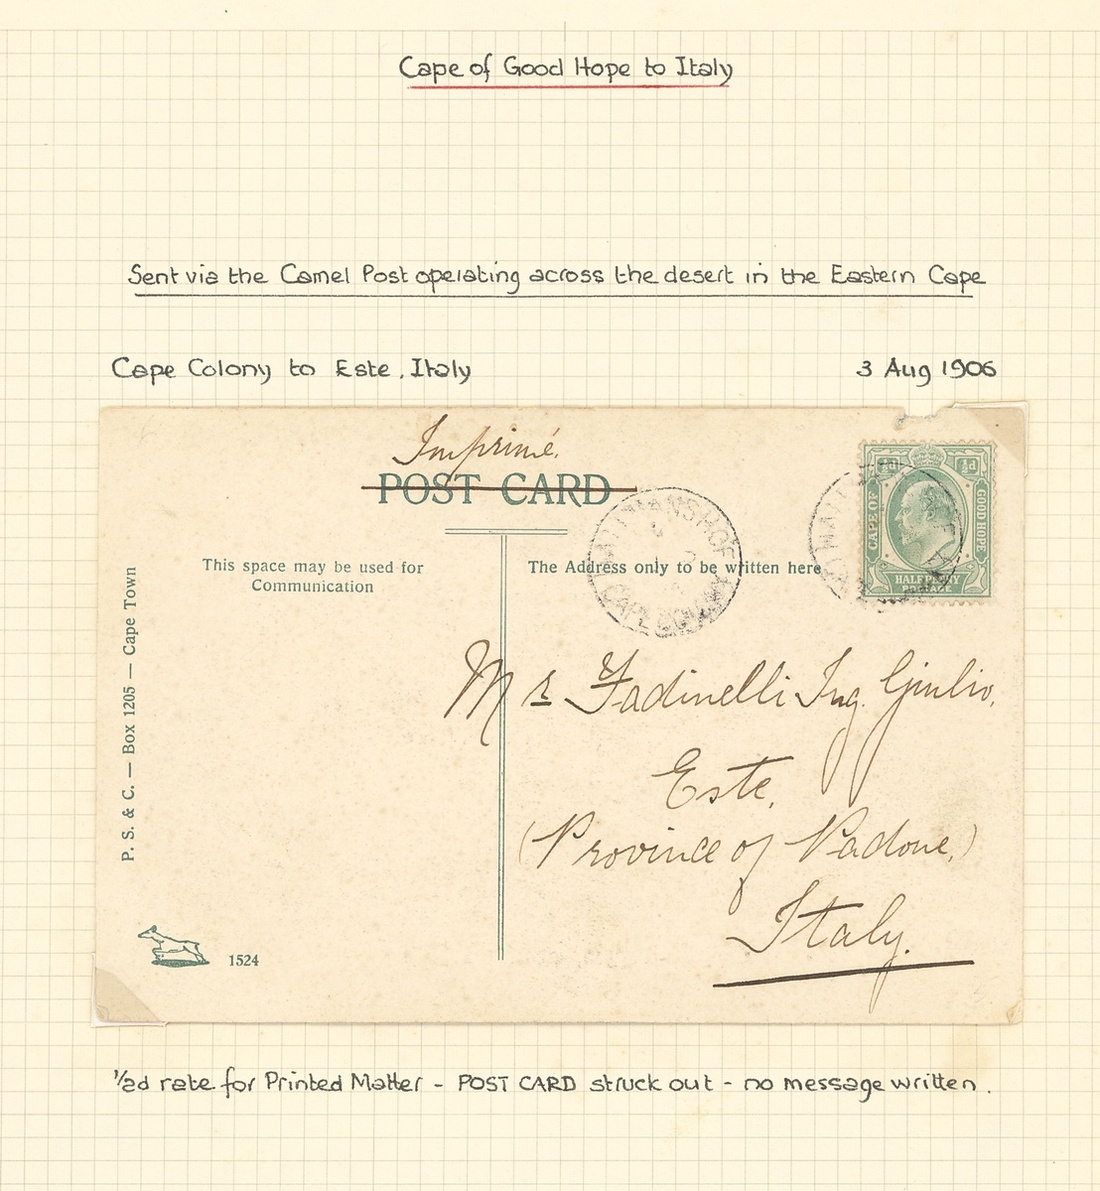 Cape of Good Hope to Italy
Sent via the Camel Post operating across the desert in the Eastern Cape
Cape Colony to Este, Italy
3 Aug 1906
Imprimé.
POST CARD
½d ½d
CAPE OF
GOOD HOPE
HALFPENNY
POSTAGE
CAPE COLONY
This space may be used for
Communication
The Address only to be written here.
P. S. & C. — Box 1205 — Cape Town
Mr Fadinelli Ing. Giulio,
Este,
(Province of Padone,)
Italy.
1524
½d rate for Printed Matter - POST CARD struck out - no message written.